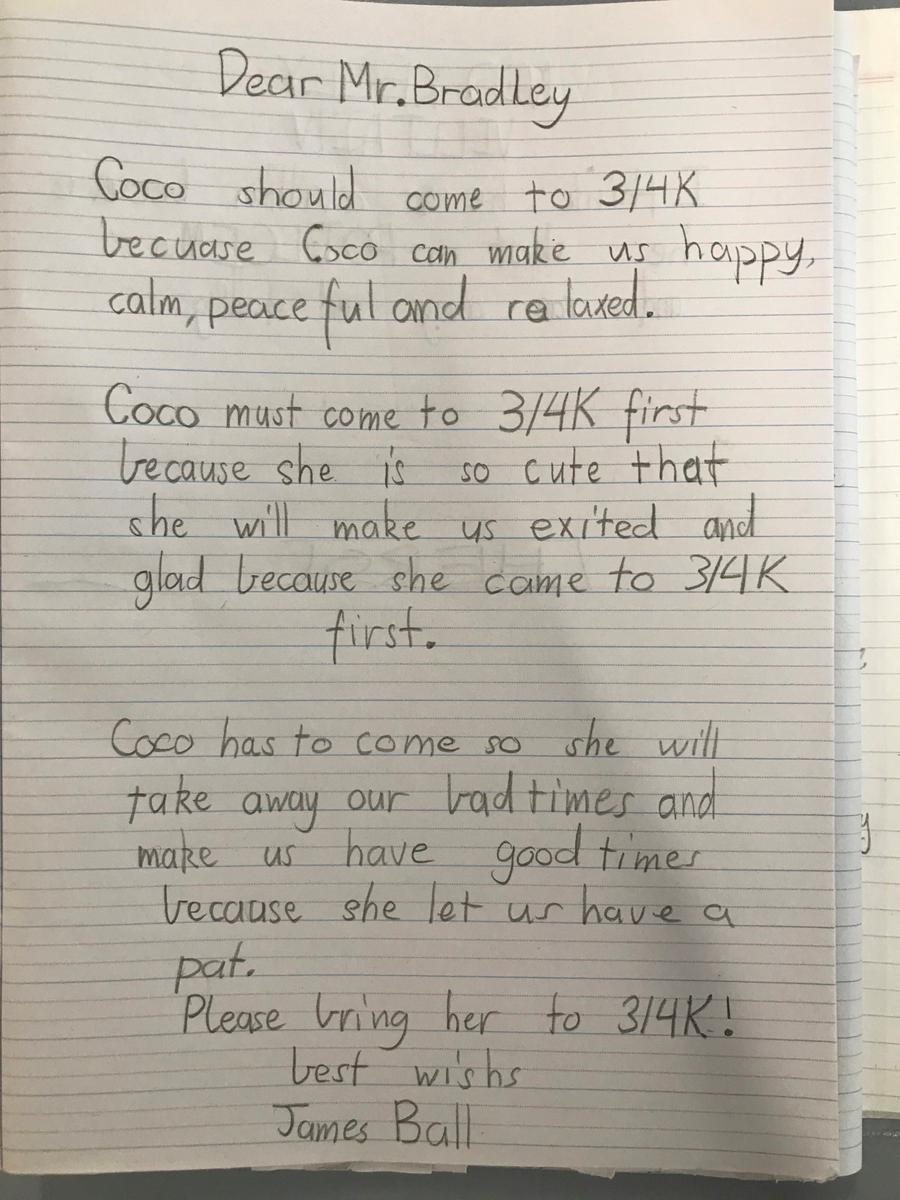 Dear Mr. Bradley
Coco should come to 3/4K
becuase Coco can make us happy,
calm, peaceful and relaxed.
Coco must come to 3/4K first
because she is so cute that
she will make us exited and
glad because she came to 3/4K
first.
Coco has to come so she will
take away our bad times and
make us have good times
because she let us have a
pat.
Please bring her to 3/4K!
best wishs
James Ball